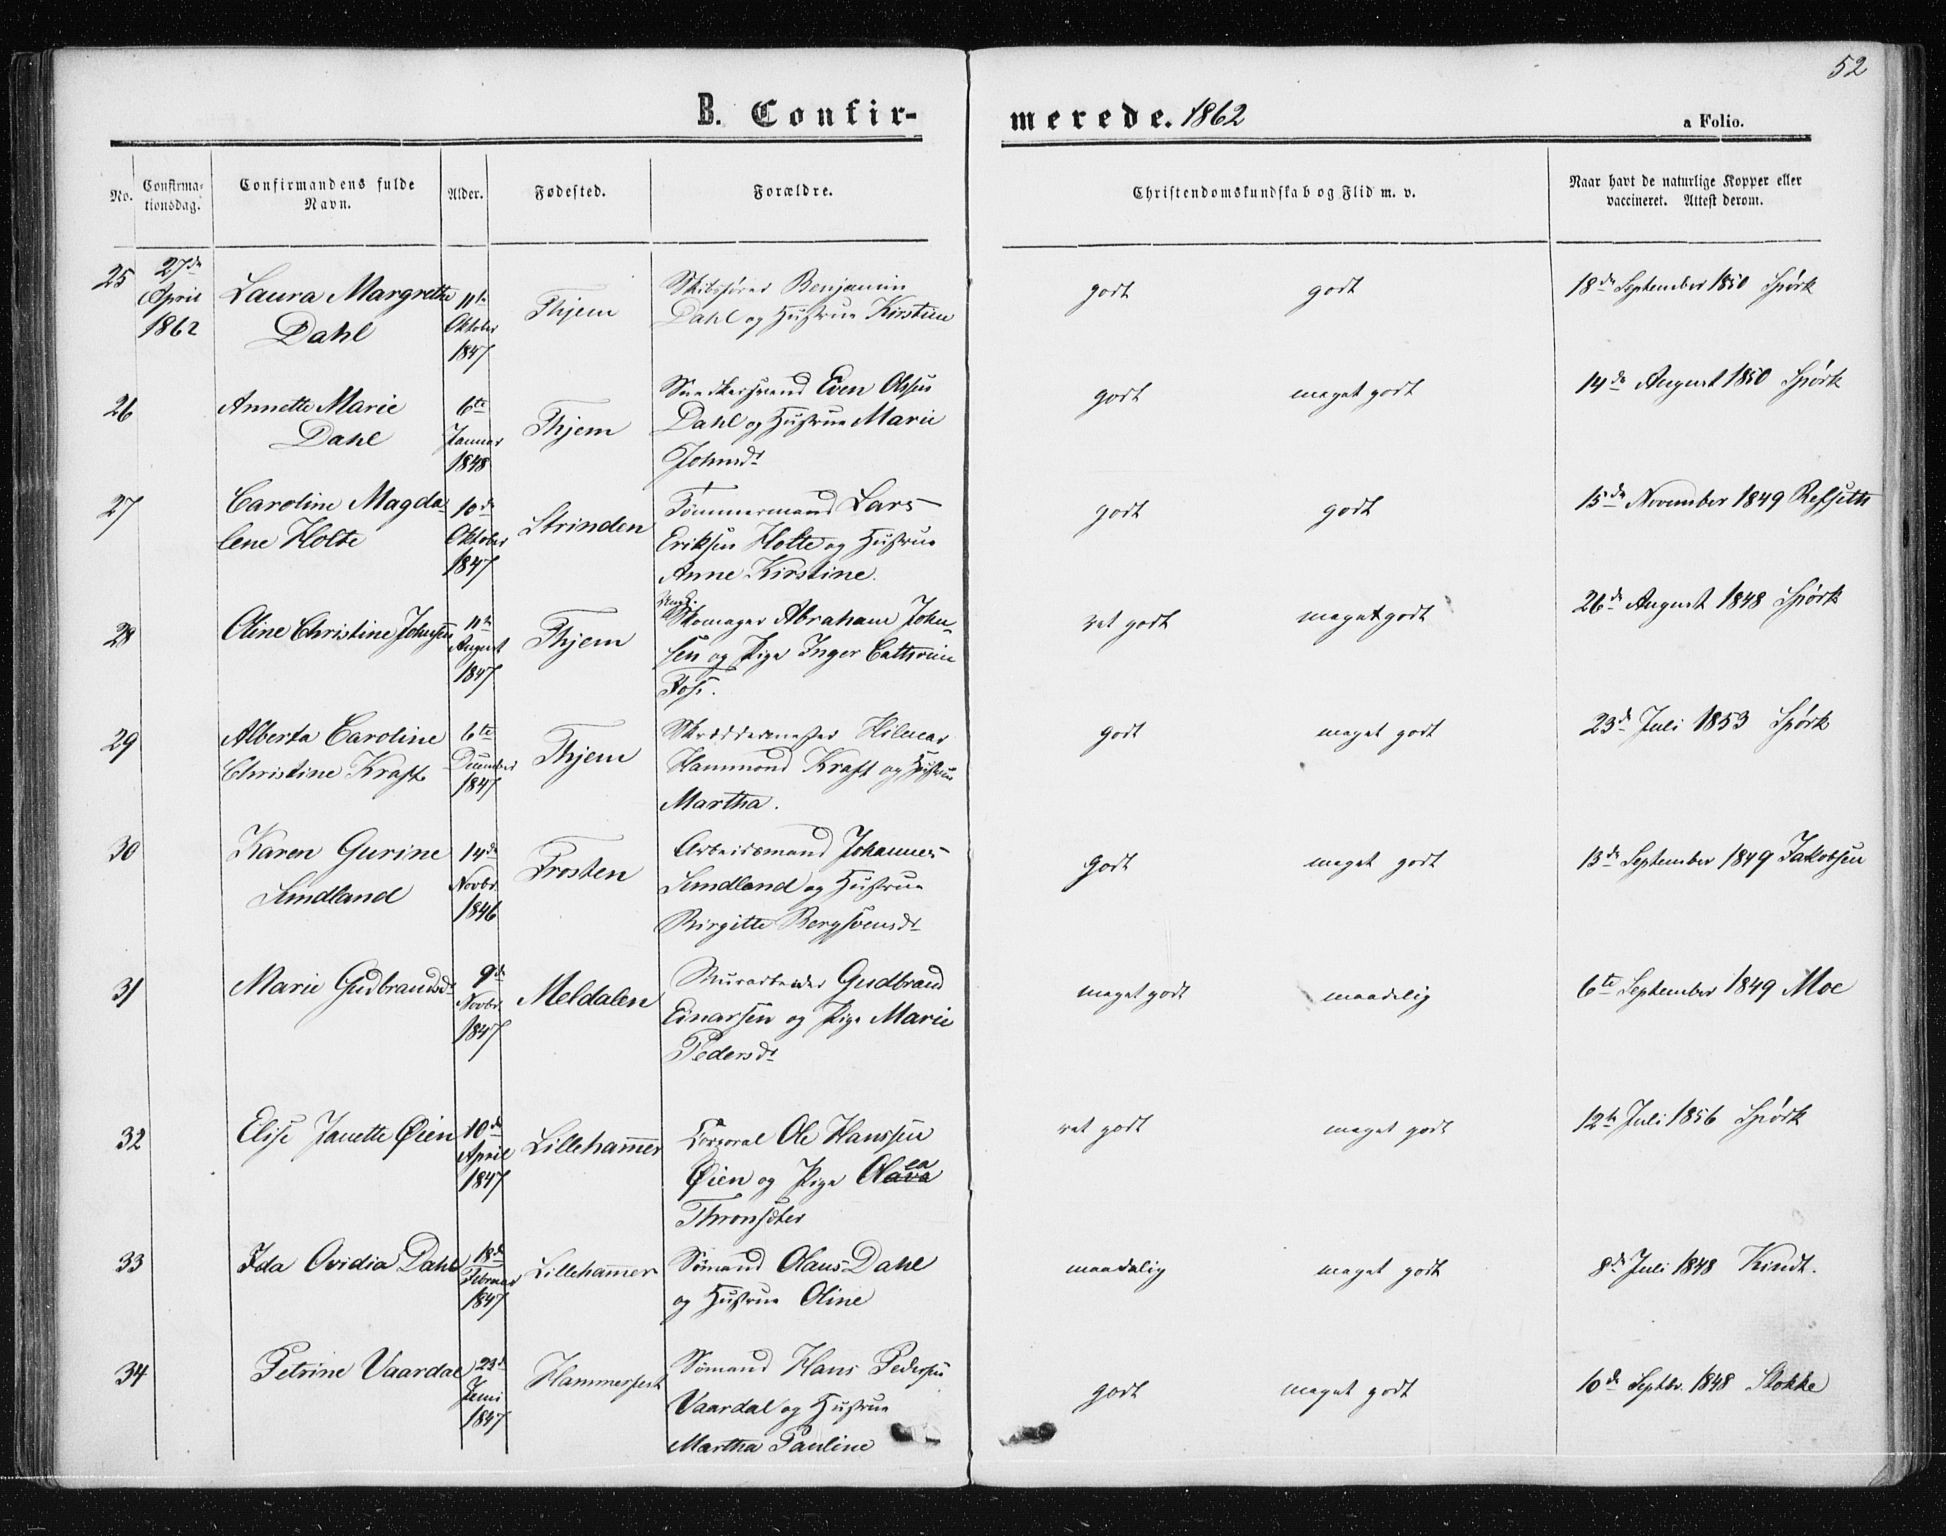 52
B. Confirmerede. 1862
a Folio.
No. Confirmationsdag. Confirmandens fulde Navn. Alder. Fødested. Forældre. Christendomskundskab og Flid m. v. Naar havt de naturlige Kopper eller vaccineret. Attest derom.
25 27de April 1862 Laura Margrethe Dahl 11te Oktober 1847 Thjem Skibsfører Benjamin Dahl og Hustrue Kirstine godt godt 18de September 1850 Spörk
26 Annette Marie Dahl 6te Januar 1848 Thjem Snedkersvend Even Olsen Dahl og Hustrue Marie Johnsdt godt meget godt 14de August 1850 Spörk
27 Caroline Magdalene Holte 10de Oktober 1847 Strinden Tømmermand Lars Eriksen Holte og Hustrue Anne Kirstine. godt godt 15de November 1849 Refseth
28 Oline Christine Johnsen 11te August 1847 Thjem Skomager Abraham Johnsen og Pige Inger Cathrine Foss. ret godt meget godt 26de August 1848 Spörk
29 Alberta Caroline Christine Kraft 6te December 1847 Thjem Skræddermester Hilmar Hammond Kraft og Hustrue Martha. godt meget godt 23de Juli 1853 Spörk
30 Karen Gurine Sundland 14de Novbr. 1846 Frosten Arbeidsmand Johannes Sundland og Hustrue Birgitte Bergsvensdt godt meget godt 13de September 1849 Jakobsen
31 Marie Gudbrandsdt 9de Novbr. 1847 Meldalen Murarbeider Gudbrand Einarsen og Pige Marie Pedersdt meget godt maadelig 6te September 1849 Moe
32 Elise Janette Øien 10de April 1847 Lillehammer Corporal Ole Hanssen Øien og Pige Olea Thronsdter ret godt meget godt 12te Juli 1856 Spörk
33 Ida Ovidia Dahl 18de Februar 1847 Lillehammer Sømand Olaus Dahl og Hustrue Oline maadelig meget godt 8de Juli 1848 Kindt.
34 Petrine Vaardal 23de Juni 1847 Hammerfest Sømand Hans Pedersen Vaardal og Hustrue Martha Pauline godt meget godt 10de Septbr. 1848 Stokke